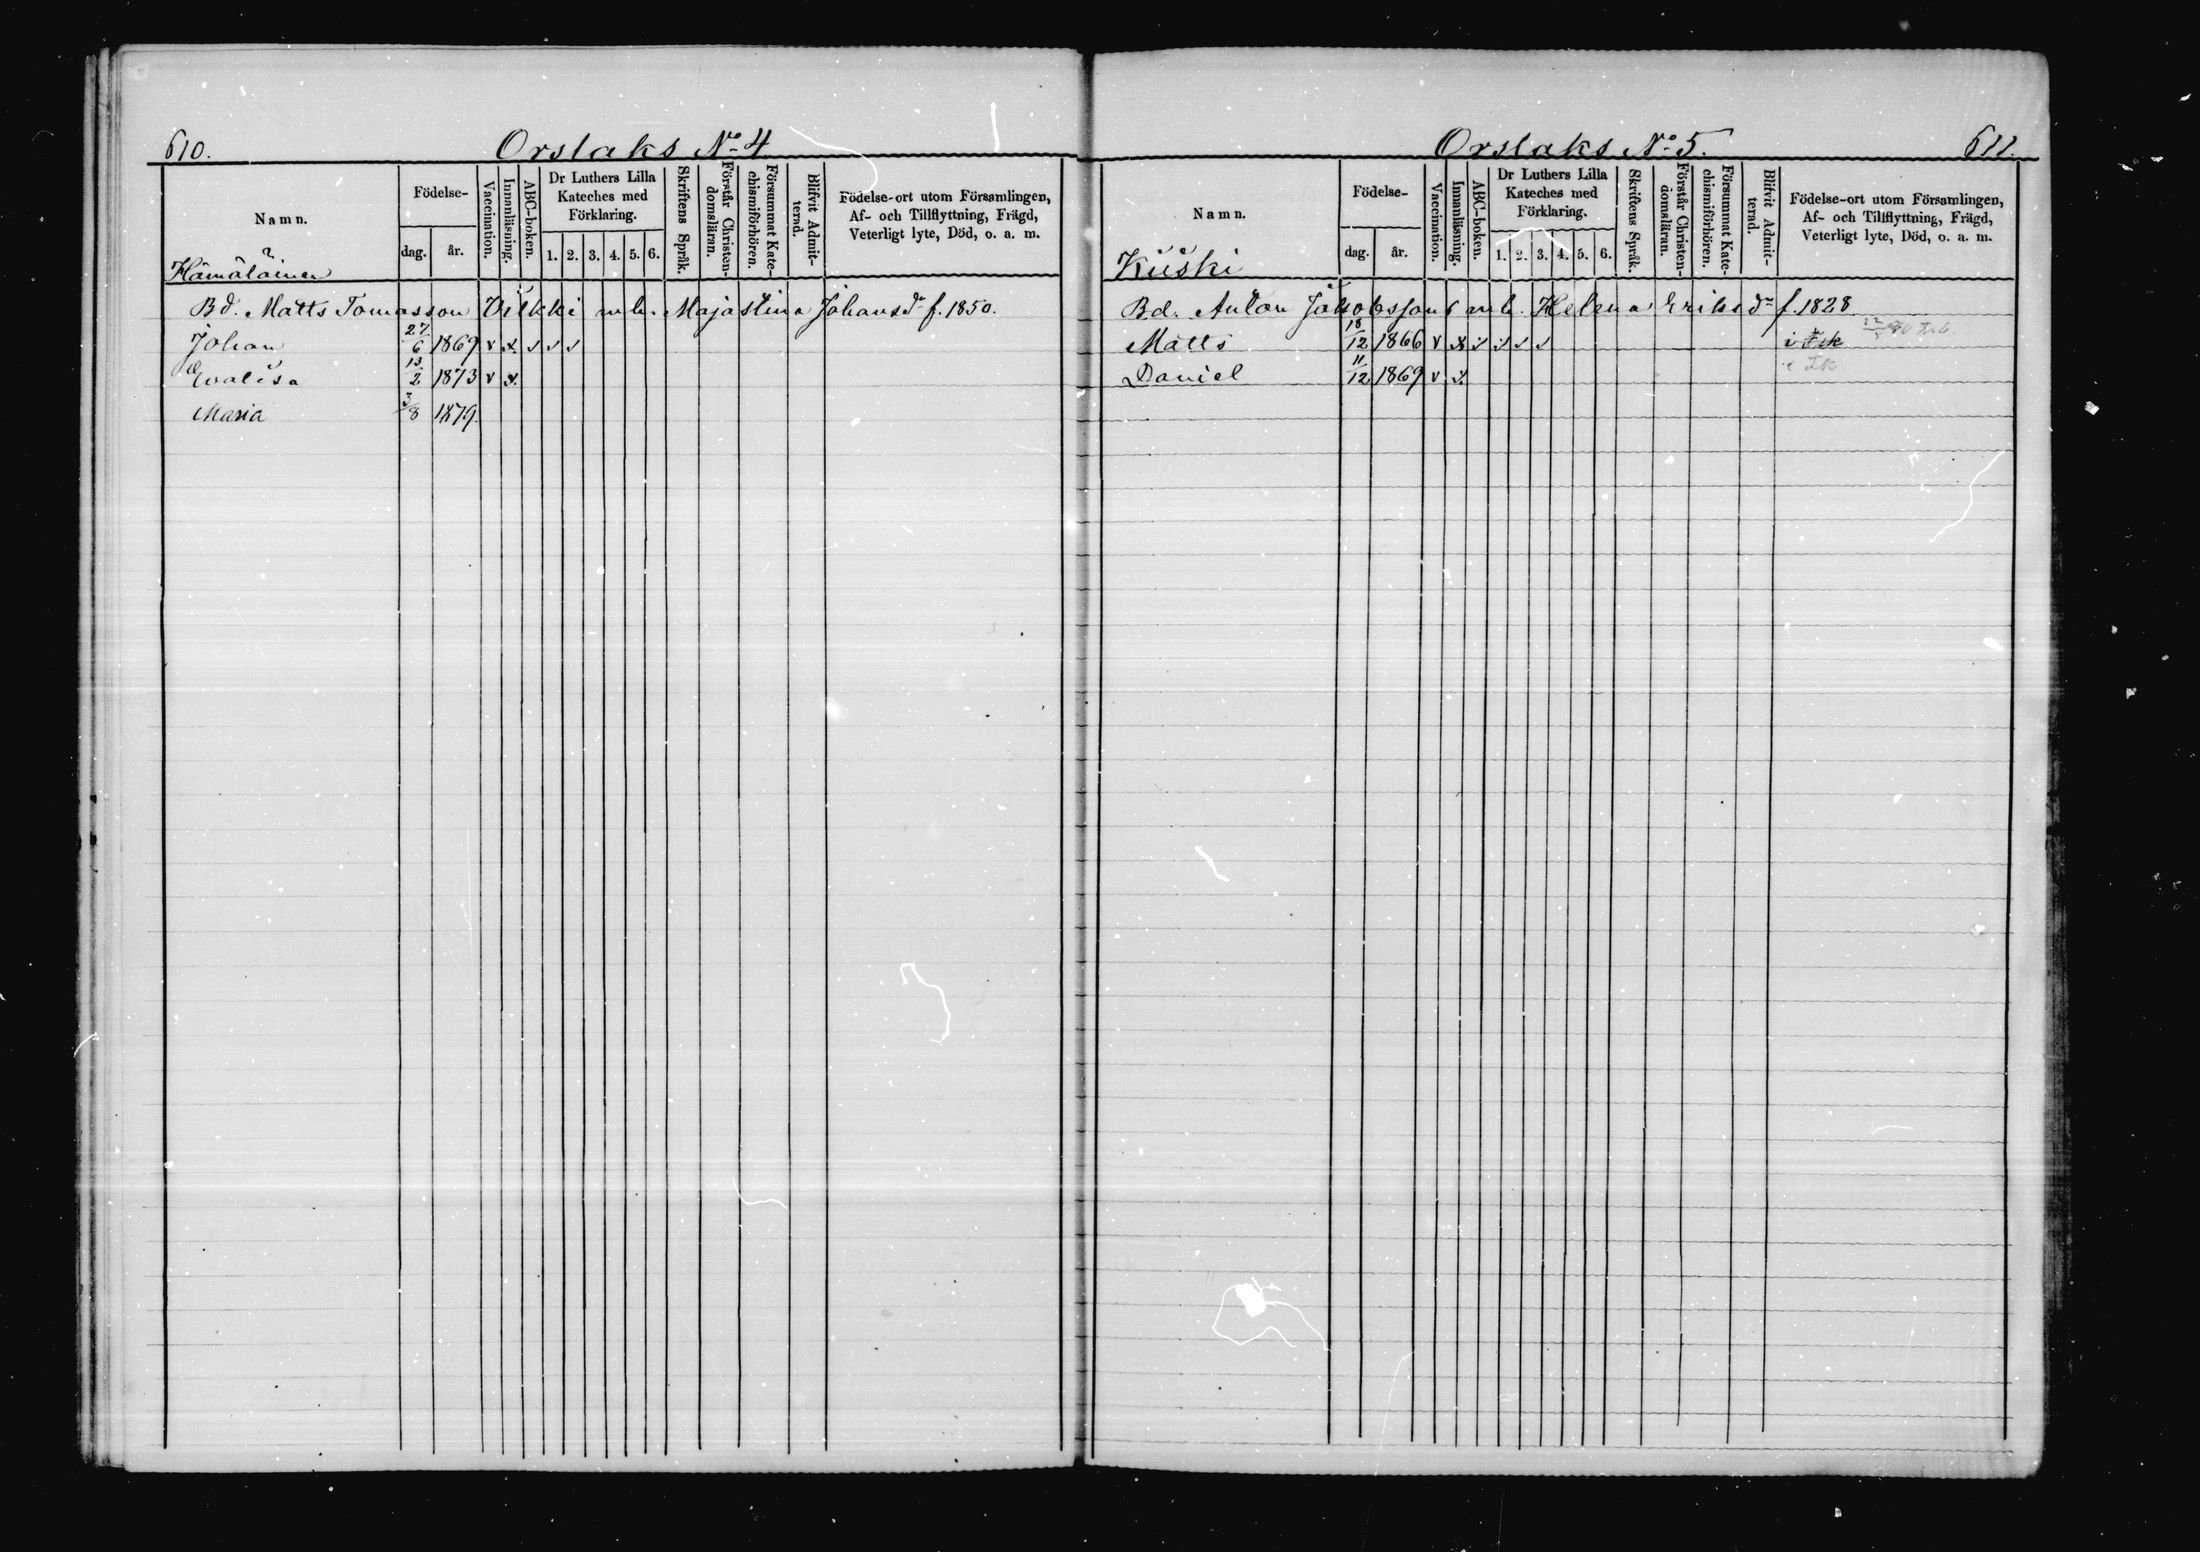 610. Orslaks No 4
Namn. Födelse- dag. år. Vaccination. Innanläsning. ABC-boken. Dr Luthers Lilla Kateches med Förklaring. 1. 2. 3. 4. 5. 6. Skriftens Språk. Förstår Christendomsläran. Försummat Katechismiförhören. Blifvit Admitterad. Födelse-ort utom Församlingen, Af- och Tillflyttning, Frägd, Veterligt lyte, Död, o. a. m.
Hämäläinen
Bd. Matts Tomasson Vilkki m.h. Majastina Johansdr f. 1850.
Johan 27/6 1869 v x v v v
Evalisa 13/2 1873 v x
Maria 3/8 1879.
Orslaks No 5. 611.
Namn. Födelse- dag. år. Vaccination. Innanläsning. ABC-boken. Dr Luthers Lilla Kateches med Förklaring. 1. 2. 3. 4. 5. 6. Skriftens Språk. Förstår Christendomsläran. Försummat Katechismiförhören. Blifvit Admitterad. Födelse-ort utom Församlingen, Af- och Tillflyttning, Frägd, Veterligt lyte, Död, o. a. m.
Kuski
Bd. Anton Jakobsson m.h. Helena Eriksdr f. 1828
Matts 18/12 1866 v x v v v v
Daniel 11/12 1869 v x